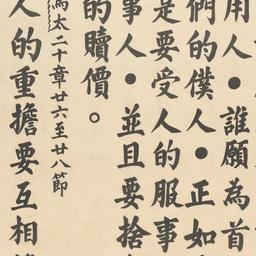 用人●誰願為首
們的僕人●正如
是要受人的服事
事人●並且要捨
的贖價。
馬太二十章廿六至廿八節
人的重擔要互相